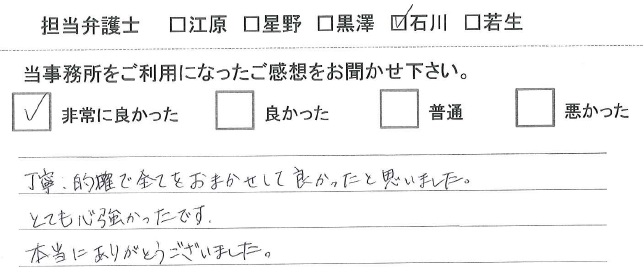 担当弁護士 □江原 □星野 □黒澤 ☑石川 □若生
当事務所をご利用になったご感想をお聞かせ下さい。
☑ 非常に良かった □ 良かった □ 普通 □ 悪かった
丁寧、的確で全てをおまかせして良かったと思いました。
とても心強かったです。
本当にありがとうございました。